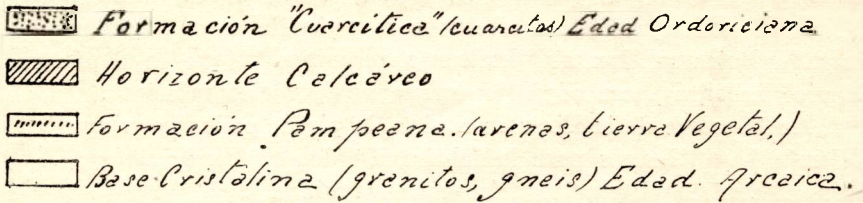 Formación "Cuarcitica" (cuarcitas) Edad Ordoriciana
Horizonte Calcáreo
Formación Pampeana. (arenas, tierra Vegetal,)
Base Cristalina (granitos, gneis) Edad. Arcaica.